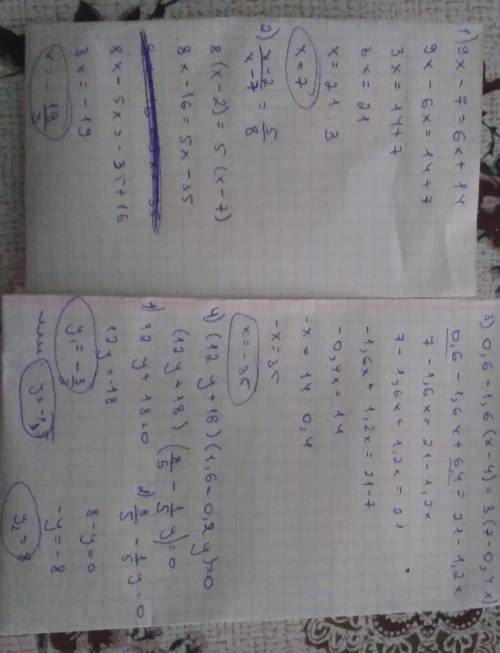 1) 9x - 7 = 6x + 14
9x - 6x = 14 + 7
3x = 14 + 7
3x = 21
x = 21 : 3
x = 7
2) x-2/x-7 = 5/8
8(x-2) = 5(x-7)
8x - 16 = 5x - 35
8x - 5x = -35 + 16
3x = -19
x = -19/3
3) 0,6 - 1,6(x-4) = 3(7-0,4x)
0,6 - 1,6x + 6,4 = 21 - 1,2x
7 - 1,6x = 21 - 1,2x
7 - 1,6x + 1,2x = 21
-1,6x + 1,2x = 21 - 7
-0,4x = 14
-x = 14 0,4
-x = 35
x = -35
4) (12y+18)(1,6-0,2y)=0
(12y+18) (8/5 - 1/5 y)=0
1) 12y + 18 = 0
12y = -18
y₁ = -3/2
или y = -1,5
2) 8/5 - 1/5 y = 0
8 - y = 0
-y = -8
y₂ = 8